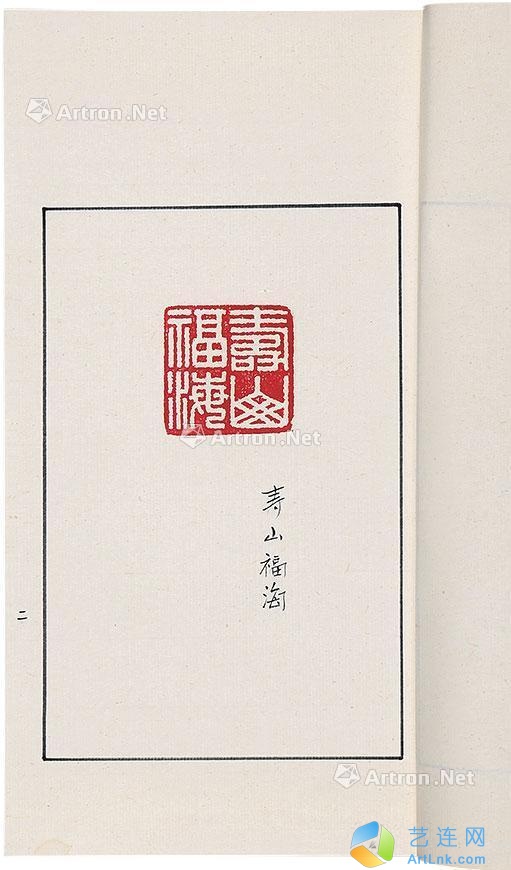 Artron.Net
壽山
福海
Artron.Net
寿山福海
二
Artron.Net
艺连网
ArtLnk.com